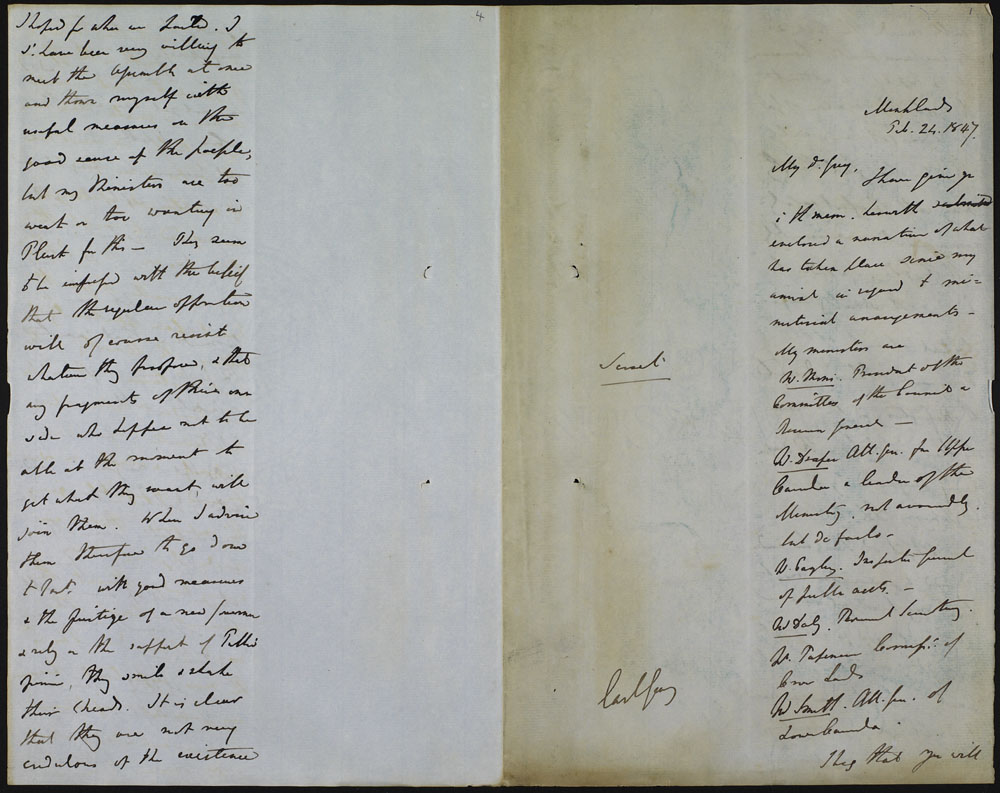 4
I hoped for when we started. I
sd. have been very willing to
meet the Assembly at once
and throw myself with
useful measures on the
good sense of the people,
but my Ministers are too
weak or too wanting in
Pluck for this — They seem
to be impressed with the belief
that the regular opposition
will of course resist
whatever they propose, & that
any fragments of their own
side who happen not to be
able at the moment to
get what they want, will
join them. When I advise
them therefore to go down
to Part. with good measures
& the prestige of a new Governor
& rely on the support of Public
, they smile & shake
their heads. It is clear
that they are not very
credulous of the existence
Secret
Earl Grey
1
Monklands
Feb. 24. 1847.
My d. Grey,
I have given you
in the mem. herewith submitted
enclosed a narrative of what
has taken place since my
arrival in regard to mi=
nisterial arrangements —
My ministers are
Mr. Morris. President of the
Committee of the Council &
Receiver General —
Mr. Draper Att. Gen. for Upper
Canada & leader of the
Ministry, not avowedly,
but de facto —
Mr. Cayley. Inspector General
of public accts. —
Mr. Daly. Provincial Secretary.
Mr. Papineau Commissr. of
Crown Lands
Mr. Smith. Att. Gen. of
Lower Canada.
I beg that you will